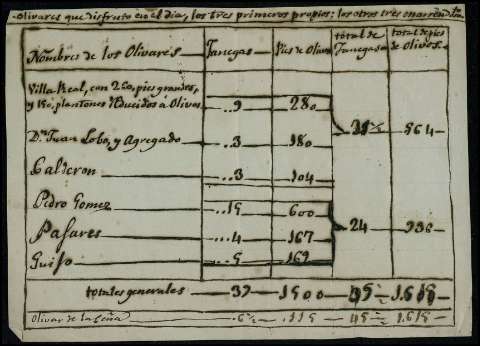 olivares que disfruto en el dia, los tres primeros propios; los otros tres en arrendto
Nombres de los Olivares Fanegas Pies de Olivos total de Fanegas total de pies de Olivos.
Villa Real, con 260, pies grandes,
y 150, plantones reducidos á Olivos 9 280
Dn Juan Lobo, y Agregado ..3 180 564
Calderon ..3 104
Pedro Gomez ..15 600
Pajares ...4 167 24 936
Guijo ..5 169
totales generales 39 1500
Olivar de la Ceña ..6½ ..115